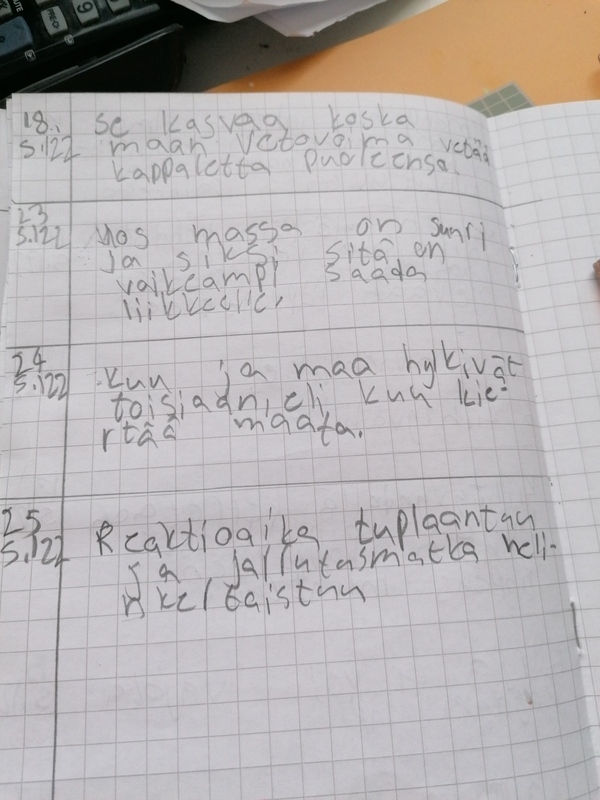 18. se kasvaa koska
s.122 maan vetovoima vetää
kappaletta puoleensa.
23
s.122 yos massa on suuri
ja siksi sitä on
vaikeampi saada
liikkeelle,
24
s.122 .kuu ja maa hylkivät
toisiaan, eli kuu kie-
rtää maata.
25
s.122 Reaktioaika tuplaantuu
ja jarrutusmatka neli-
nkertaistuu